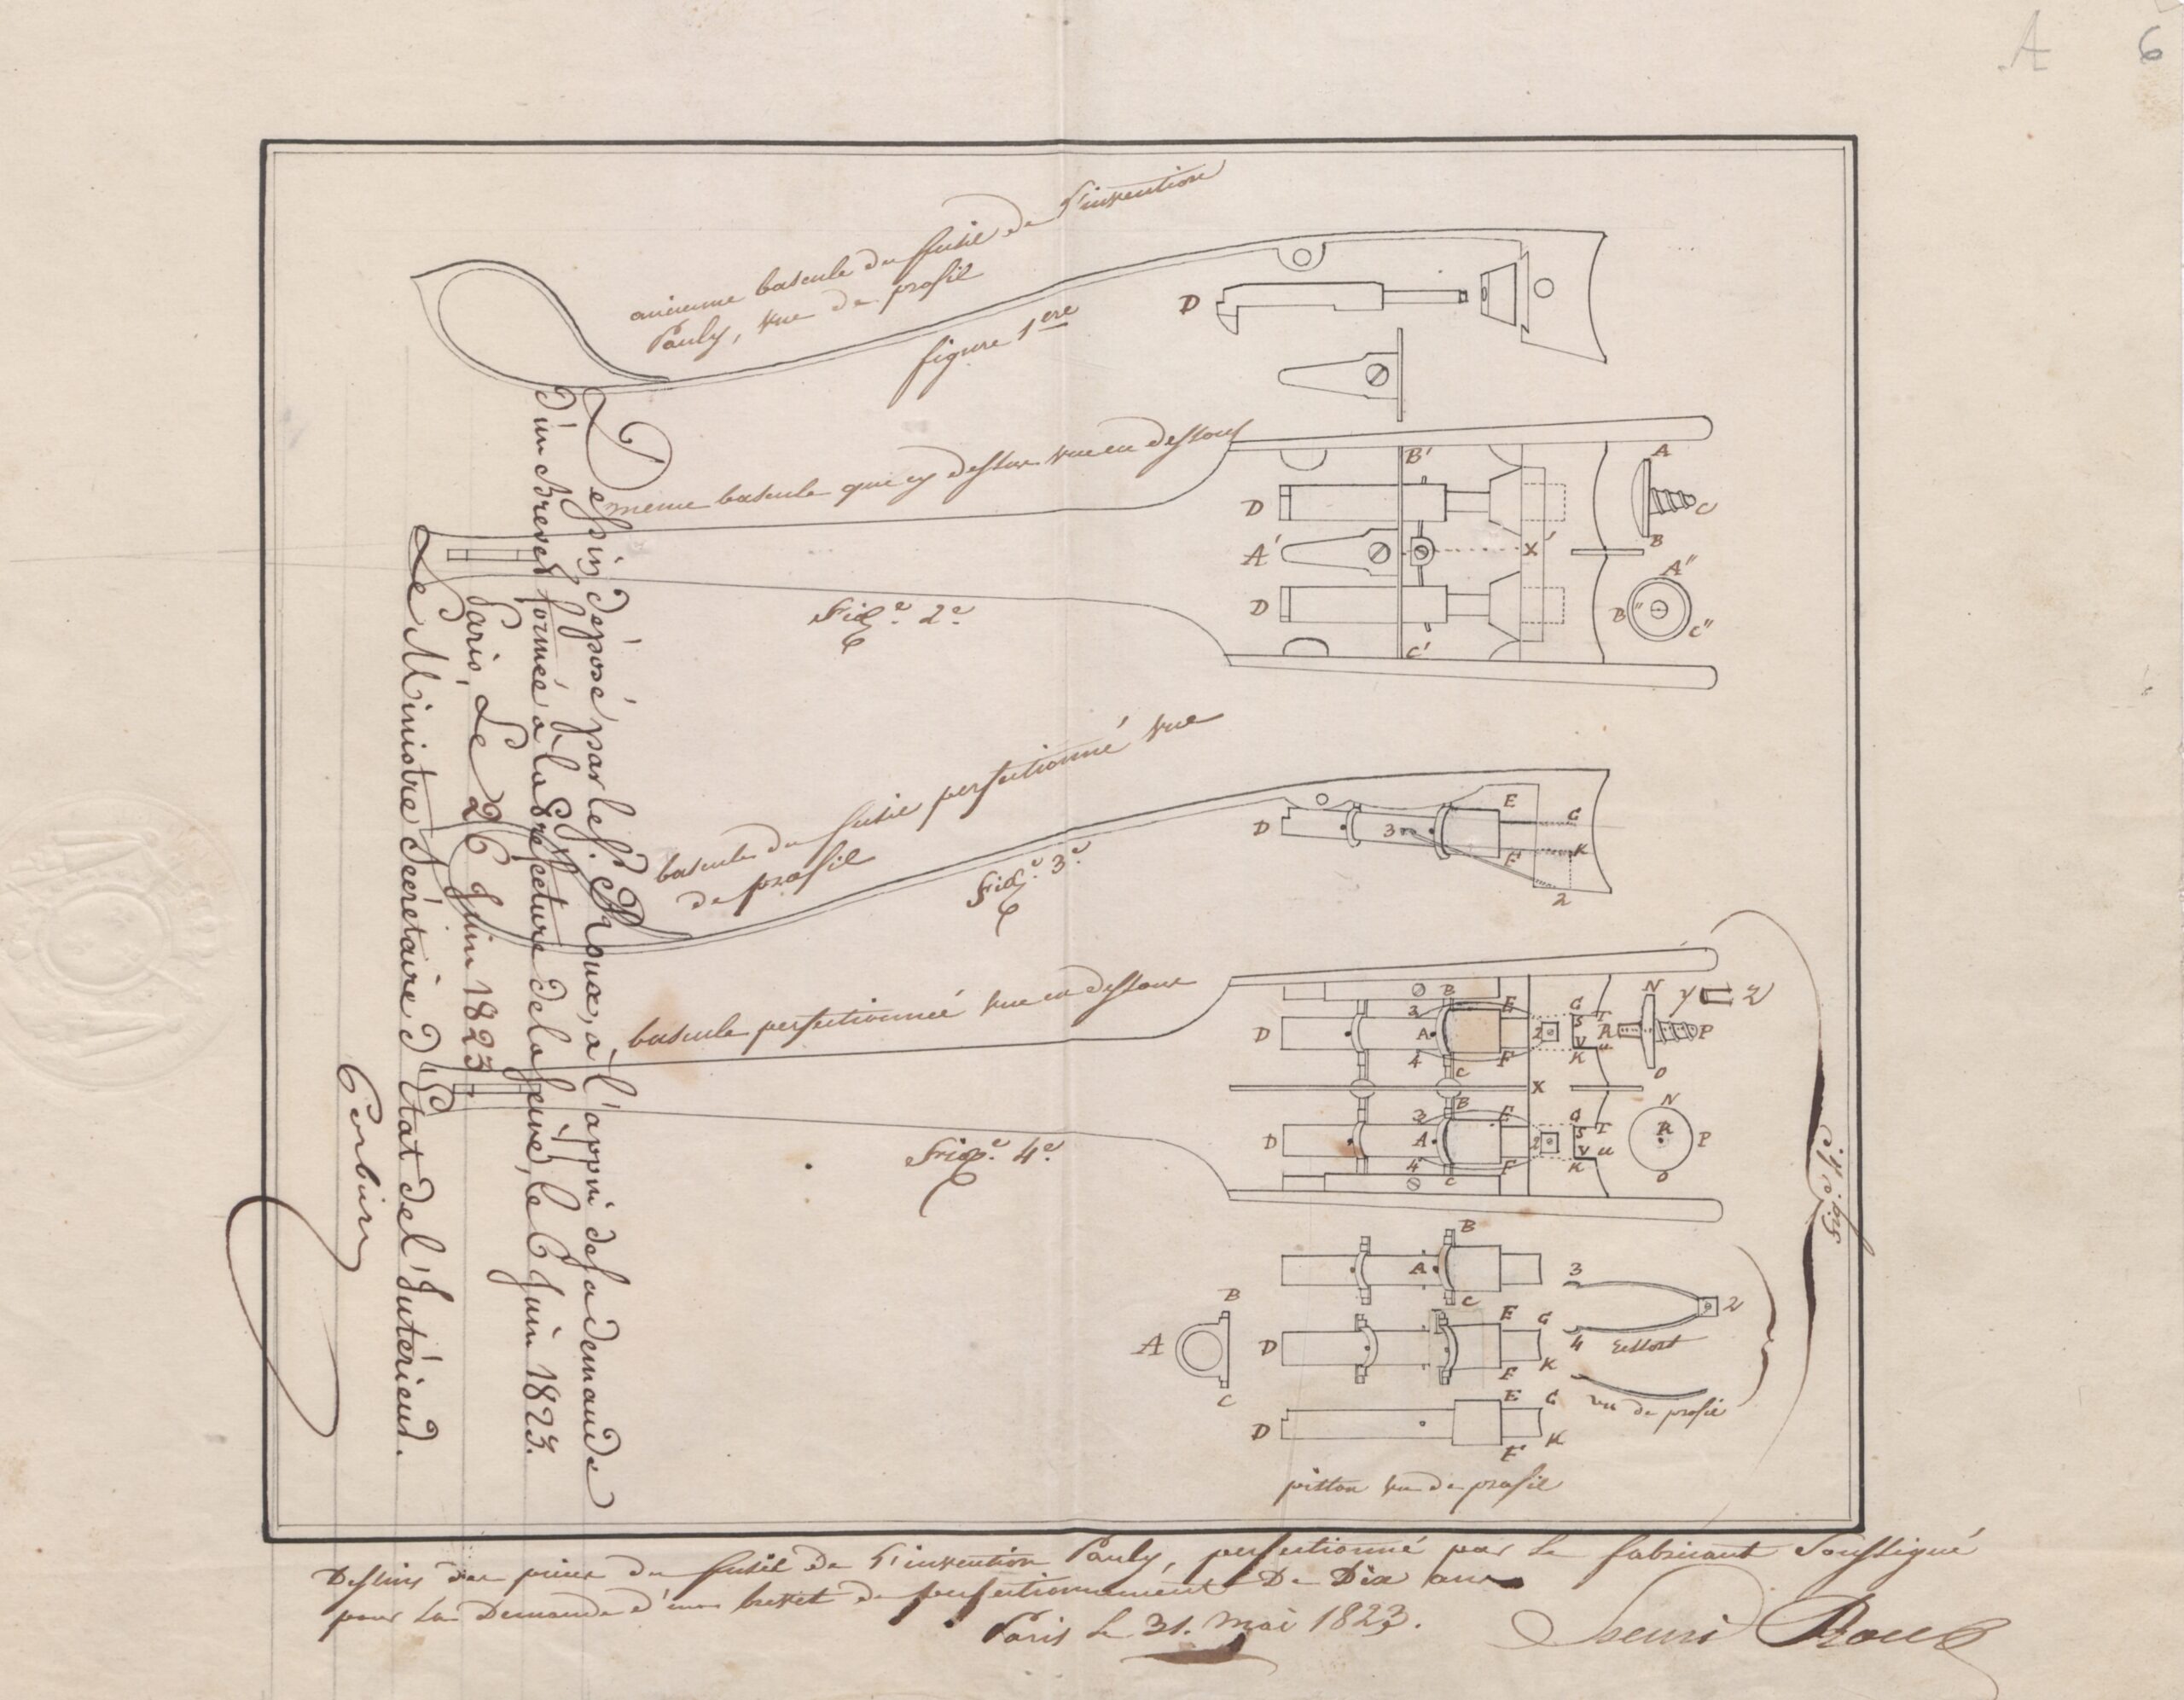 A 6
ancienne bascule du fusil de l'invention
Pauly, vue de profil
figure 1ere
D
même bascule que cy dessus vue en dessous
B'
D
A'
X'
D
C'
A
C
B
A"
B"
C"
Fig.e 2.e
bascule du fusil perfectionné vue
de profil
Fig.e 3.e
D
3
E
G
F
K
2
bascule perfectionnée vue en dessous
Fig.e 4.e
B
3
E
G
D
A
2
S
T
4
F
V
u
C
K
X
B
3
E
G
D
A
2
S
T
4
F
V
u
C
K
N
y
Z
R
P
O
N
R
P
O
B
A
C
B
A
C
D
E
G
F
K
D
E
G
F
K
3
2
4
ressort
vu de profil
piston vu de profil
Dessin déposé par le Sr. Roux, à l'appui de sa demande
d'un Brevet formée à la Préfecture de la Seine, le 6 Juin 1823.
Paris, Le 26 Juin 1823
Le Ministre Secrétaire d'Etat de l'Intérieur.
Corbiere
Dessins des pièces du fusil de l'invention Pauly, perfectionné par le fabricant Soussigné
pour la Demande d'un brevet de perfectionnement De Dix ans
Paris le 31. mai 1823.
henri Roux